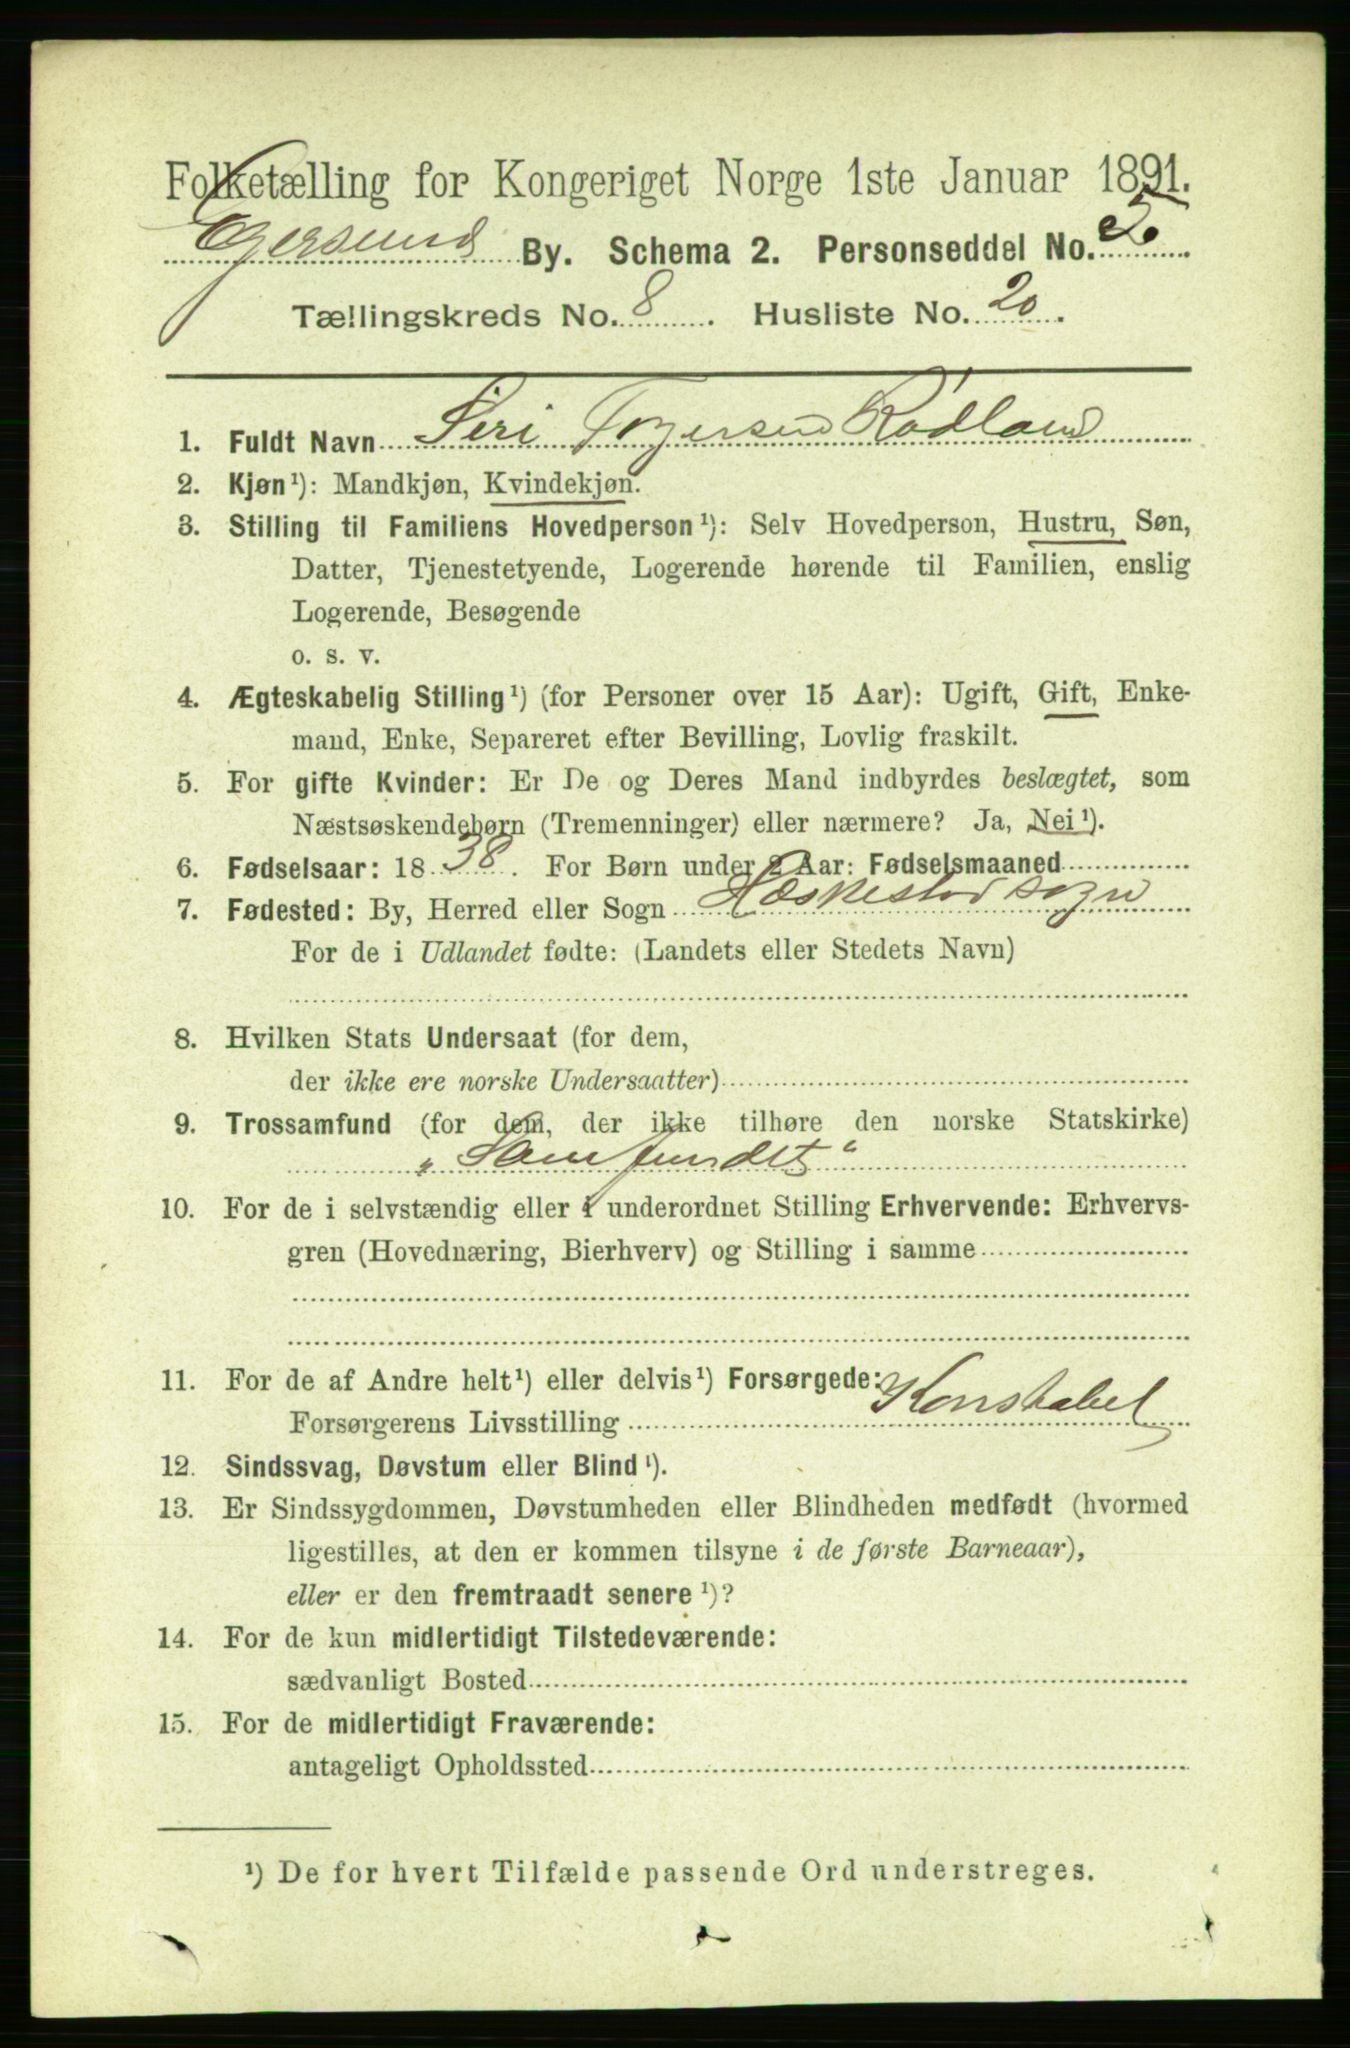 Folketælling for Kongeriget Norge 1ste Januar 1891.
Egersund By. Schema 2. Personseddel No.
Tællingskreds No. 8. Husliste No. 20.
1. Fuldt Navn Siri Togersen Rødland
2. Kjøn¹): Mandkjøn, Kvindekjøn.
3. Stilling til Familiens Hovedperson¹): Selv Hovedperson, Hustru, Søn,
Datter, Tjenestetyende, Logerende hørende til Familien, enslig
Logerende, Besøgende
o. s. v.
4. Ægteskabelig Stilling¹) (for Personer over 15 Aar): Ugift, Gift, Enke-
mand, Enke, Separeret efter Bevilling, Lovlig fraskilt.
5. For gifte Kvinder: Er De og Deres Mand indbyrdes beslægtet, som
Næstsøskendebørn (Tremenninger) eller nærmere? Ja, Nei¹).
6. Fødselsaar: 1838. For Børn under 2 Aar: Fødselsmaaned
7. Fødested: By, Herred eller Sogn Hæskestad sogn
For de i Udlandet fødte: (Landets eller Stedets Navn)
8. Hvilken Stats Undersaat (for dem,
der ikke ere norske Undersaatter)
9. Trossamfund (for dem, der ikke tilhøre den norske Statskirke)
„Samfundet“
10. For de i selvstændig eller i underordnet Stilling Erhvervende: Erhvervs-
gren (Hovednæring, Bierhverv) og Stilling i samme
11. For de af Andre helt¹) eller delvis¹) Forsørgede:
Forsørgerens Livsstilling Konstabel
12. Sindssvag, Døvstum eller Blind¹).
13. Er Sindssygdommen, Døvstumheden eller Blindheden medfødt (hvormed
ligestilles, at den er kommen tilsyne i de første Barneaar),
eller er den fremtraadt senere¹)?
14. For de kun midlertidigt Tilstedeværende:
sædvanligt Bosted
15. For de midlertidigt Fraværende:
antageligt Opholdssted
¹) De for hvert Tilfælde passende Ord understreges.